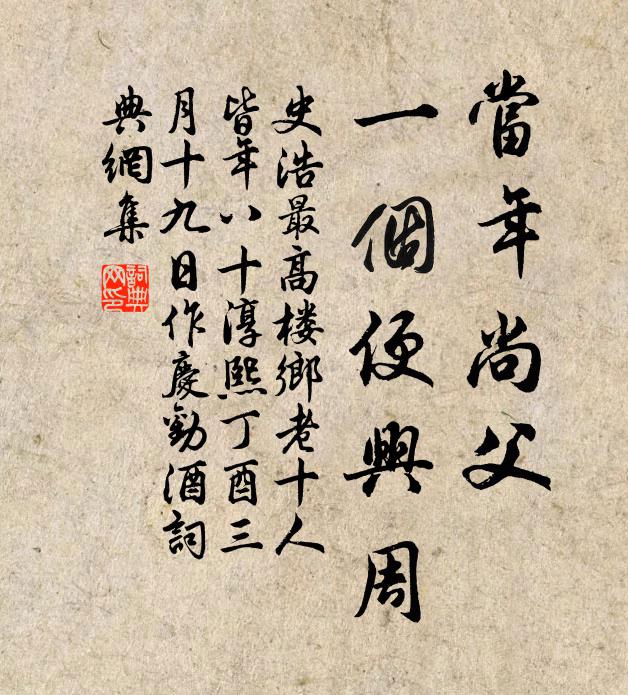 當年尚父
一個便興周
史浩最高楼鄉老十人
皆年八十淳熙丁酉三
月十九日作慶勸酒詞
典網集
詞典
网印